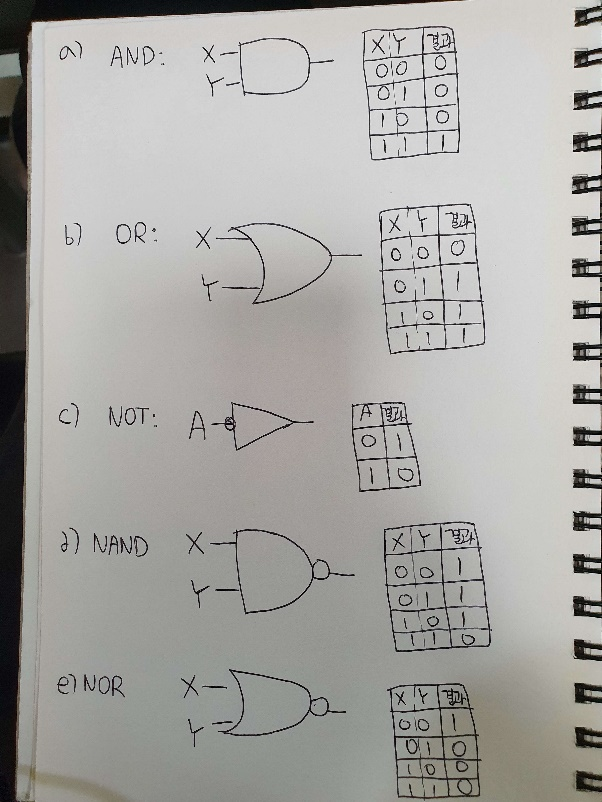 a) AND: X Y
X Y 결과
0 0 0
0 1 0
1 0 0
1 1 1
b) OR: X Y
X Y 결과
0 0 0
0 1 1
1 0 1
1 1 1
c) NOT: A
A 결과
0 1
1 0
d) NAND X Y
X Y 결과
0 0 1
0 1 1
1 0 1
1 1 0
e) NOR X Y
X Y 결과
0 0 1
0 1 0
1 0 0
1 1 0